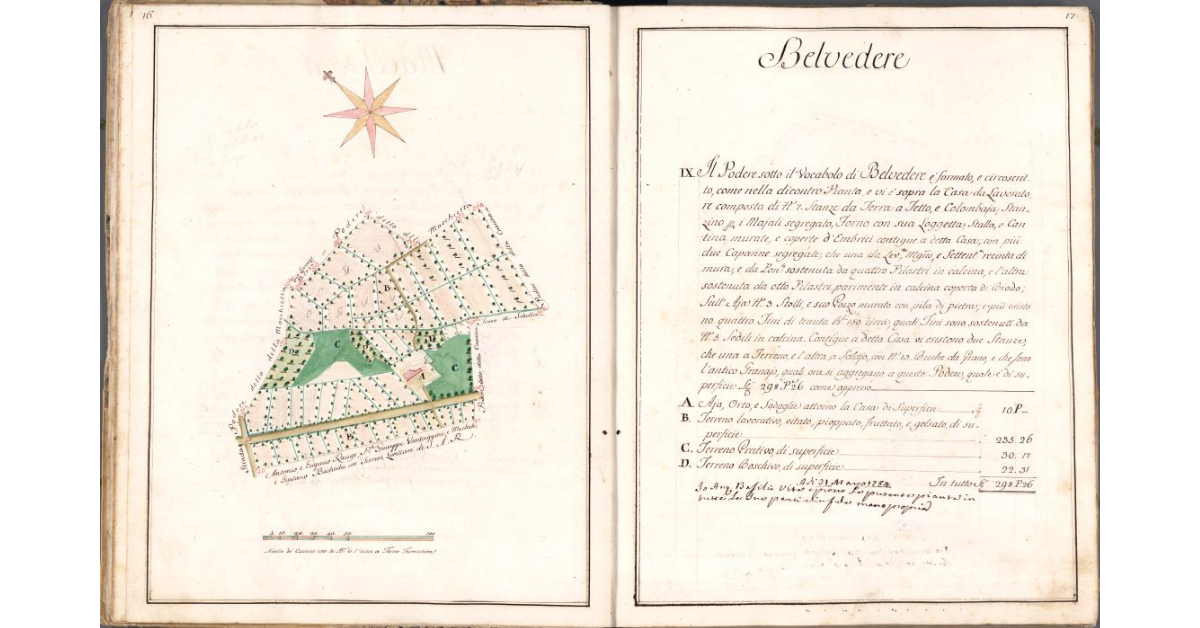 16
Podere detto della Maschietta
Podere della Maschietta
Strada
Podere detto della Casanuova
Antonio e Eugenio Quarg. Sr. Giuseppe Vantaggioni, e Machali,
e Gustavo Bastachi in Serresi Livellari di S.A.R.
5 10 20 30 40 50 100
A
B
C
C
D
D
17
Belvedere
IX. Il Podere sotto il Vocabolo di Belvedere e formato, e circoscrit
to, come nella dicontro Pianta, e vi è sopra la Casa da Lavorato
re composta di N.º 7. Stanze da Terra a Tetto, e Colombaja, Stan
zino p i Majali segregato, Forno con sua Loggetta, Stalla, e Can
tina, murate, e coperte d'Embrici contigue a detta Casa, con più
due Capanne segregate, che una da Lev.e Mgno, e Settent.e recinta di
mura, e da Pon.e sostenuta da quattro Pilastri in calcina, e l'altra
sostenuta da otto Pilastri parimente in calcina coperta di Brodo;
Sull'Aja N.º 3. Stolli, e suo Pozzo murato con pila di pietra, e più esisto
no quattro Tini di tenuta B.e 150 circa, quali Tini sono sostenuti da
N.º 5. Sedili in calcina. Contigue a detta Casa vi esistono due Stanze,
che una a Terreno, e l'altra a Palco, con N.º 10. Buche da Grano, e che sono
l'antico Granajo, quali ora si aggregano a questo Podere, quale è di su
perficie St 298.P.26 come appresso
A. Aja, Orto, e Sodaglie attorno la Casa di Superficie St 10P_
B. Terreno lavorativo, vitato, pioppato, fruttato, e, gelsato, di su
perficie 235.26
C. Terreno Prativo di superficie 30.17
D. Terreno Boschivo, di superficie 22.31
In tutto St 298.P.26
A dì 31 Marzo 1784
Io Ang. Basilio Visi
in fede mano propria